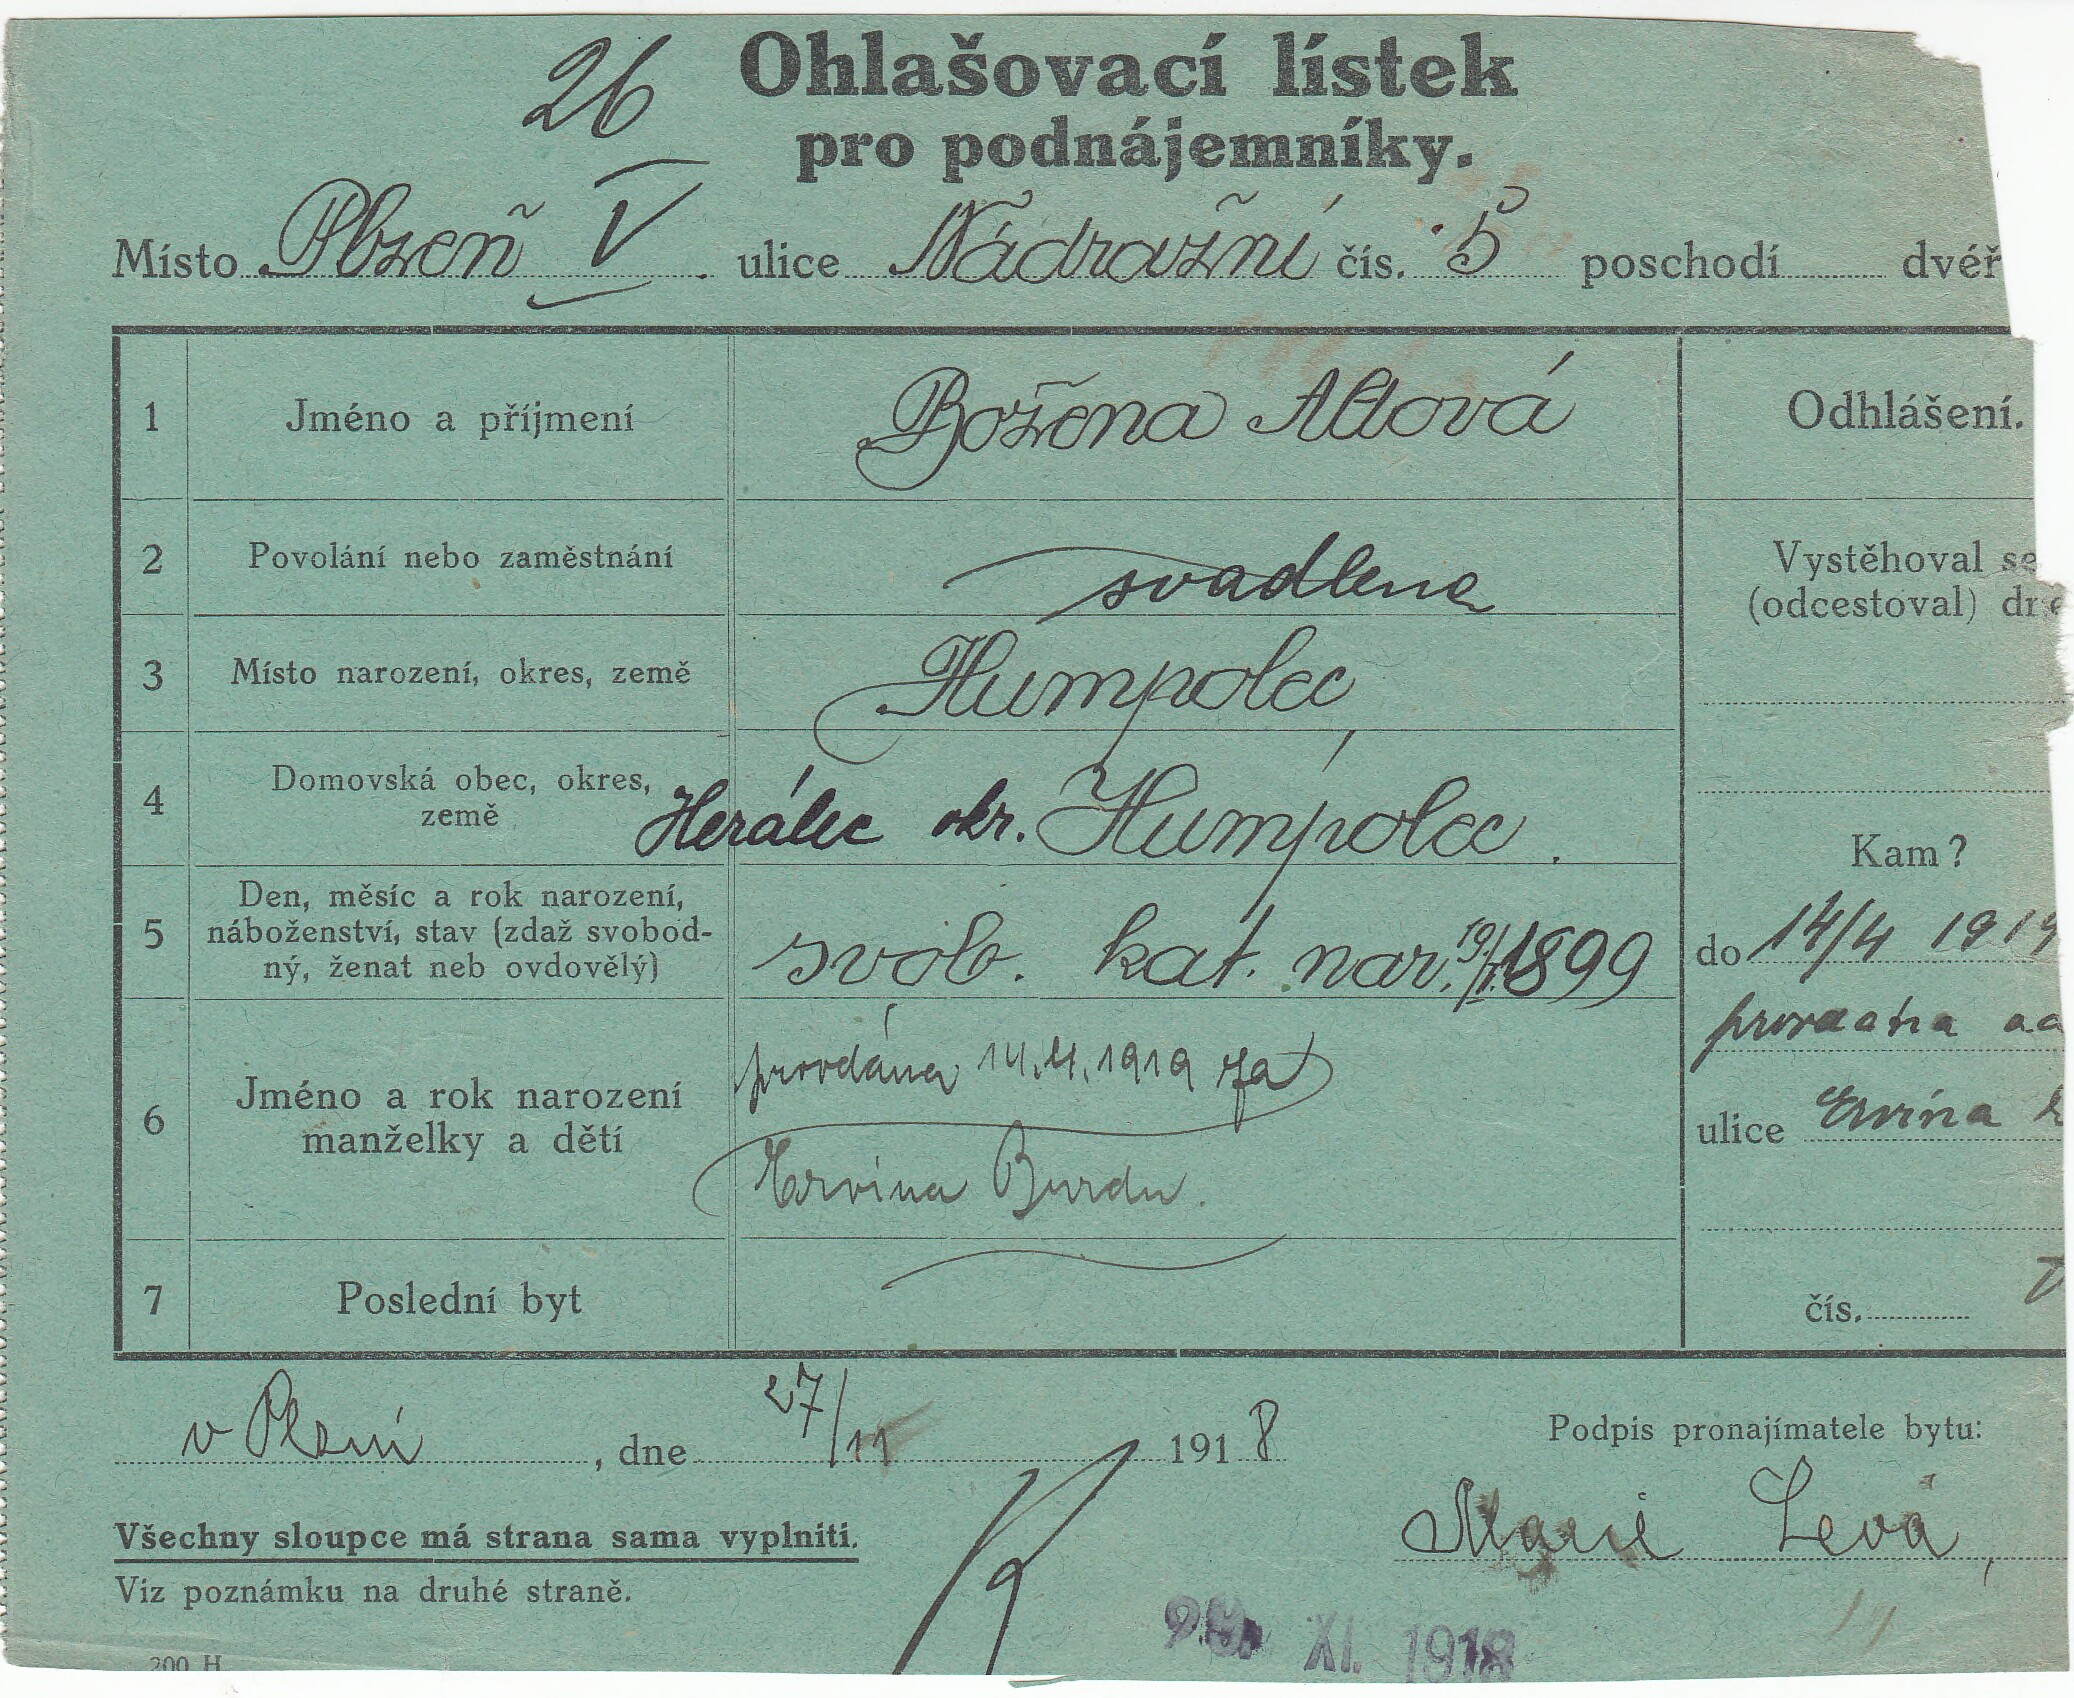 26
Ohlašovací lístek
pro podnájemníky.
Místo Plzeň V ulice Nádražní čís. 5 poschodí dvéř
1 Jméno a příjmení Božena Altová Odhlášení.
2 Povolání nebo zaměstnání svadlena Vystěhoval se
(odcestoval)
3 Místo narození, okres, země Humpolec
4 Domovská obec, okres, země Herálec okr. Humpolec. Kam?
5 Den, měsíc a rok narození, náboženství, stav (zdaž svobod-
ný, ženat neb ovdovělý) svob. kat. nar. 1899
do 14/4 1919
6 Jméno a rok narození
manželky a dětí
provdána 14.4.1919 za
Ervina Burdu.
ulice Ervina
7 Poslední byt
čís.
v Plzni, dne 27/11 1918
Podpis pronajímatele bytu:
Marie Levá,
Všechny sloupce má strana sama vyplniti.
Viz poznámku na druhé straně.
XI. 1918
200 H